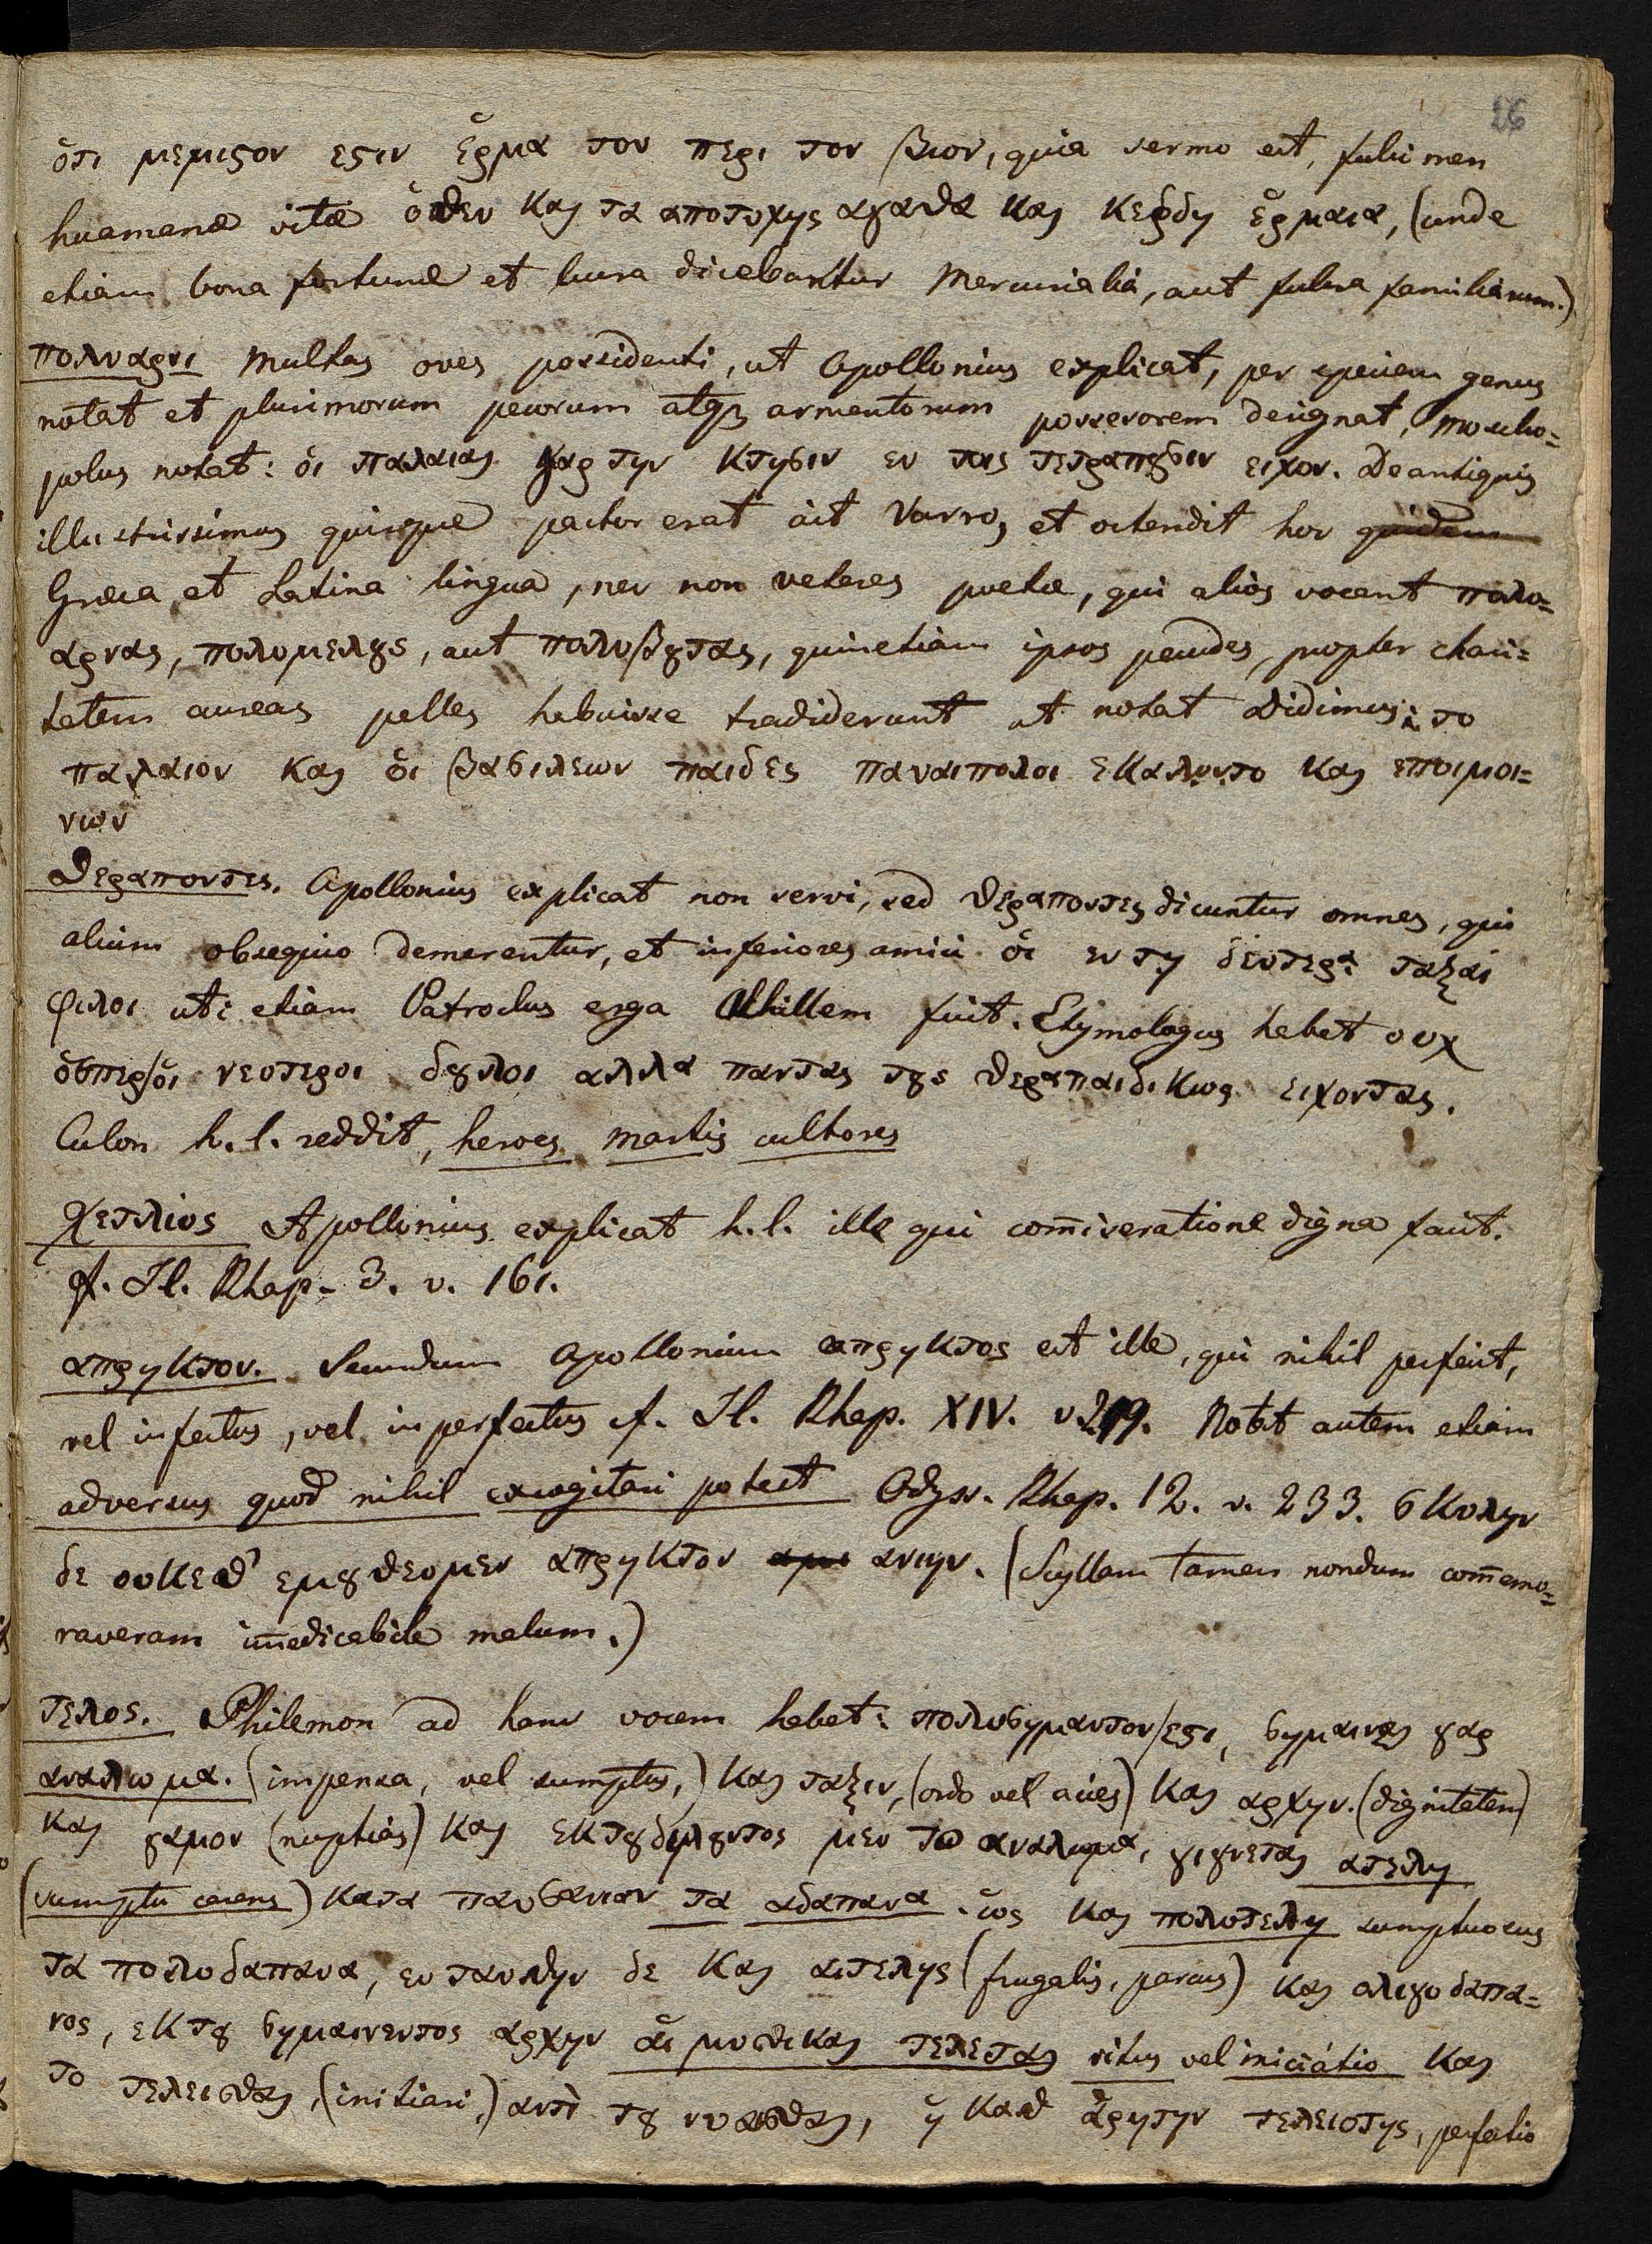 26
ὅτι μεμιςον εςιν ἕρμα τον περι τον βιον, quia sermo est, fulcimen
huamanæ vitæ ὅθεν και τα αποτυχης αγαθα και κεῤδη ἕρμαια, (unde
etiam bona fortunæ et lucra dicebantur Mercurialia, aut fulcra familiarum.)
πολυαρνι multas oves possidenti, ut Apollonius explicat, per speciem genus
notat et plurimorum pecorum atq3 armentorum possessorem designat, Moscho=
polus notat: ὁι παλαιαι γαρ την κτησιν εν τοις τετραπησιν ειχον. De antiquis
illustrissimus quisque pastor erat ait Varro, et ostendit hoc quidem
Græca et Latina lingua, nec non veteres poetæ, qui alios vocant πολυ=
αρνας, πολυμελȣς, aut πολυβȣτας, quinetiam ipsos pecudes, propter chari=
tatem aureas pelles habuisse tradiderunt ut notat Didimus: το
παλαιον και ὁι βασιλεων παιδες παναιπολοι εκαλουντο και εποιμοι=
νων
θεραποντες. Apollonius explicat non servi, sed θεραποντες dicuntur omnes, qui
alium obsequio demerentur, et inferiores amici ὁι εν τη δευτερα ταξαι
φιλοι uti etiam Patroclus erga Achillem fuit. Etymologus habet ουχ
ὁσπερ/ὁι νεοτεροι δȣλοι αλλα παντας τȣς θεραπαιδικως ειχοντας.
Culon h. l. reddit, heroes martis cultores
Χετλιος Apollonius explicat h. l. ille qui com̄iseratione digna facit.
cf. Il. Rhap. 3. v. 161.
απρηκτον. Secundum Apollonium απρηκτος est ille, qui nihil perfecit,
vel infectus, vel inperfectus cf. Il. Rhap. XIV. v. 219. Notat autem etiam
adversus quod nihil excogitari potest Odyss. Rhap. 12. v. 233. σκυλην
δε ουκεθ' εμȣθεομεν απρηκτον ανιην. (Scyllam tamen nondum com̄emo=
raveram im̄edicabile malum.)
τελος. Philemon ad hanc vocem habet: πολυσημαντον/εςι, σημαιναι γαρ
αναλωμα. (impensa, vel sumptus,) και ταξιν, (ordo vel acies) και αρχην. (dignitatem)
και γαμον (nuptias) και εκτȣδηλȣντος μεν το αναλωμα, γιγνεται ατελη
(sumptu carens) κατα παυσανιαν τα αδαπανα. ὡς και πολυτελη sumptuosus
τα πολυδαπανα, εν ταυθην δε και αιτελης (frugalis, parcus) και ολιγοδαπα=
νος, εκ τȣ σημαινεντος αρχην ἁι μυσικαι τελεται ritus vel iniciatio και
το τελεισθαι, (initiari,) αντὶ τȣ νυασθαι, ἡ καθ ἁρητην τελειοτης, perfectio